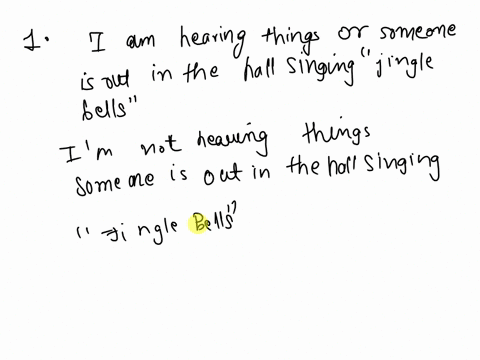 1. I am hearing things or someone
is out in the hall singing "jingle
bells"
I'm not hearing things
someone is out in the hall singing
"Jingle Bells"